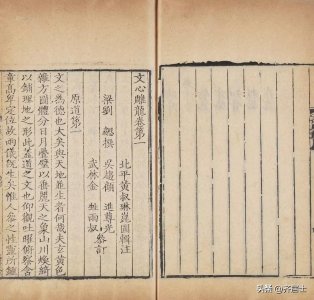 文心雕龍卷第一
北平黃叔琳崑圃輯註
梁劉 勰撰
吳趨顧 進尊光
武林金 甡雨叔
參訂
原道第一
文之為德也大矣與天地並生者何哉夫玄黃色
雜方圓體分日月疊璧以垂麗天之象山川煥綺
以鋪理地之形此蓋道之文也仰觀吐曜俯察含
章高卑定位故兩儀既生矣惟人參之性靈所鍾